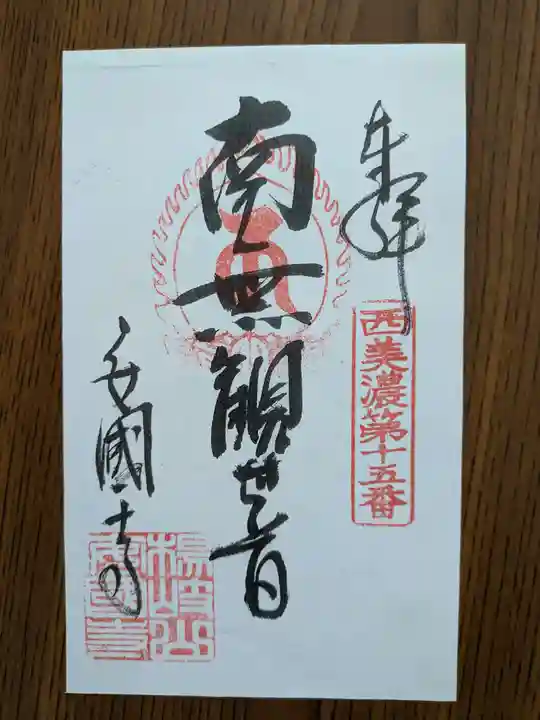 奉拝
西美濃第十五番
南無観世音
安國寺